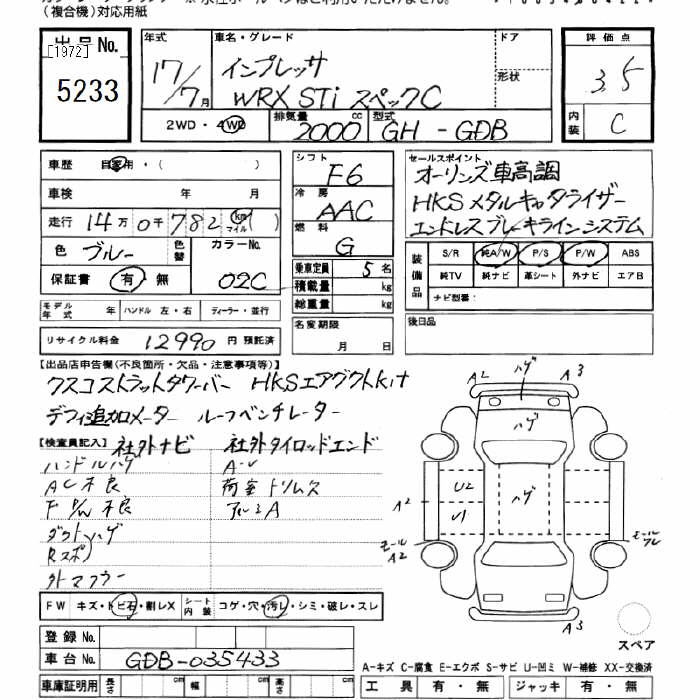 （複合機）対応用紙
出品No.
[1972]
5233
年式
17/7月
車名・グレード
インプレッサ
WRX STi スペックC
ドア
形状
評価点
3.5
内装
C
2WD・4WD
排気量
2000 cc
型式
GH - GDB
車歴 自家用・（ ）
車検 年 月
走行 14万0千782 km マイル ( )
色 ブルー 色替
カラーNo.
02C
保証書 有・無
シフト
F6
冷房
AAC
燃料
G
乗車定員 5 名
積載量 kg
総重量 kg
セールスポイント
オーリンズ車高調
HKSメタルキャタライザー
エンドレスブレーキラインシステム
装備品
S/R 純A/W P/S P/W ABS
純TV 純ナビ 革シート 外ナビ エアB
ナビ型番：
モデル年式 年 ハンドル 左・右 ディーラー・並行
リサイクル料金 12990 円 預託済
名変期限
月 日
後日品
【出品店申告欄(不良箇所・欠品・注意事項等)】
クスコストラットタワーバー HKSエアグクトkit
デフィ追加メーター ルーフベンチレーター
【検査員記入】 社外ナビ 社外タイロッドエンド
ハンドルハゲ
AC不良
F P/W 不良
ダクトハゲ
Rスポ
外マフラー
荷室トリムス
アルミA
A2 ハゲ A3
ハゲ
U2
U1
ハゲ
A2
モール A2
モール
A3
スペア
FW キズ・トビ石・割レX
シート内装 コゲ・穴・汚レ・シミ・破レ・スレ
登録No.
車台No. GDB-035433
車庫証明用 長さ cm 幅 cm 高さ cm
A-キズ C-腐食 E-エクボ S-サビ U-凹ミ W-補修 XX-交換済
工具 有・無 ジャッキ 有・無